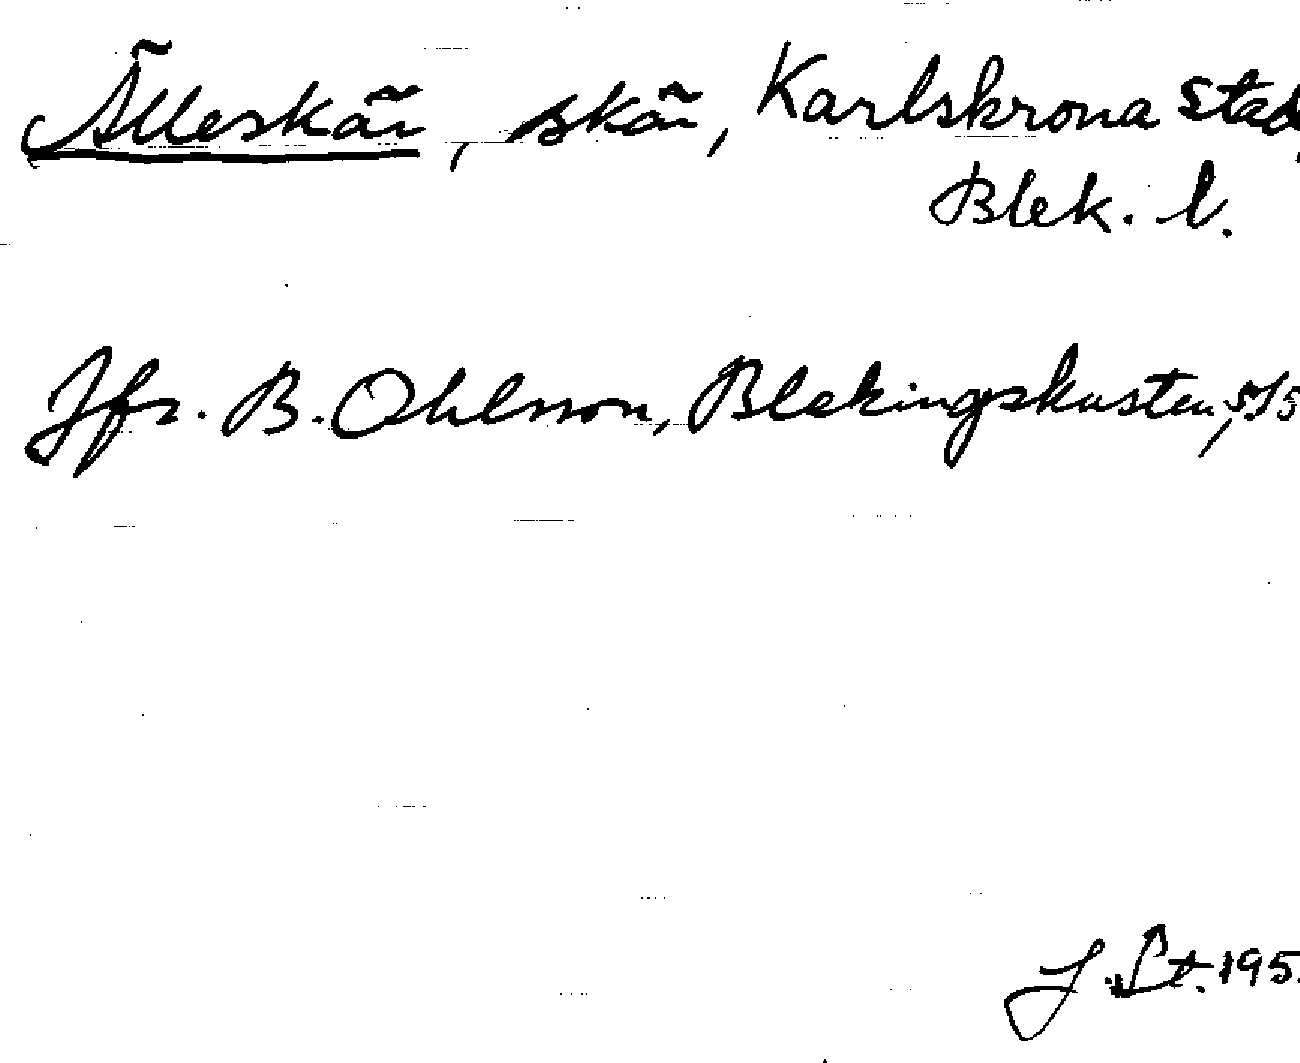 Älleskär, skär, Karlskrona stad,
Blek. l.
Jfr. B. Ohlsson, Blekingskusten,
J. 195